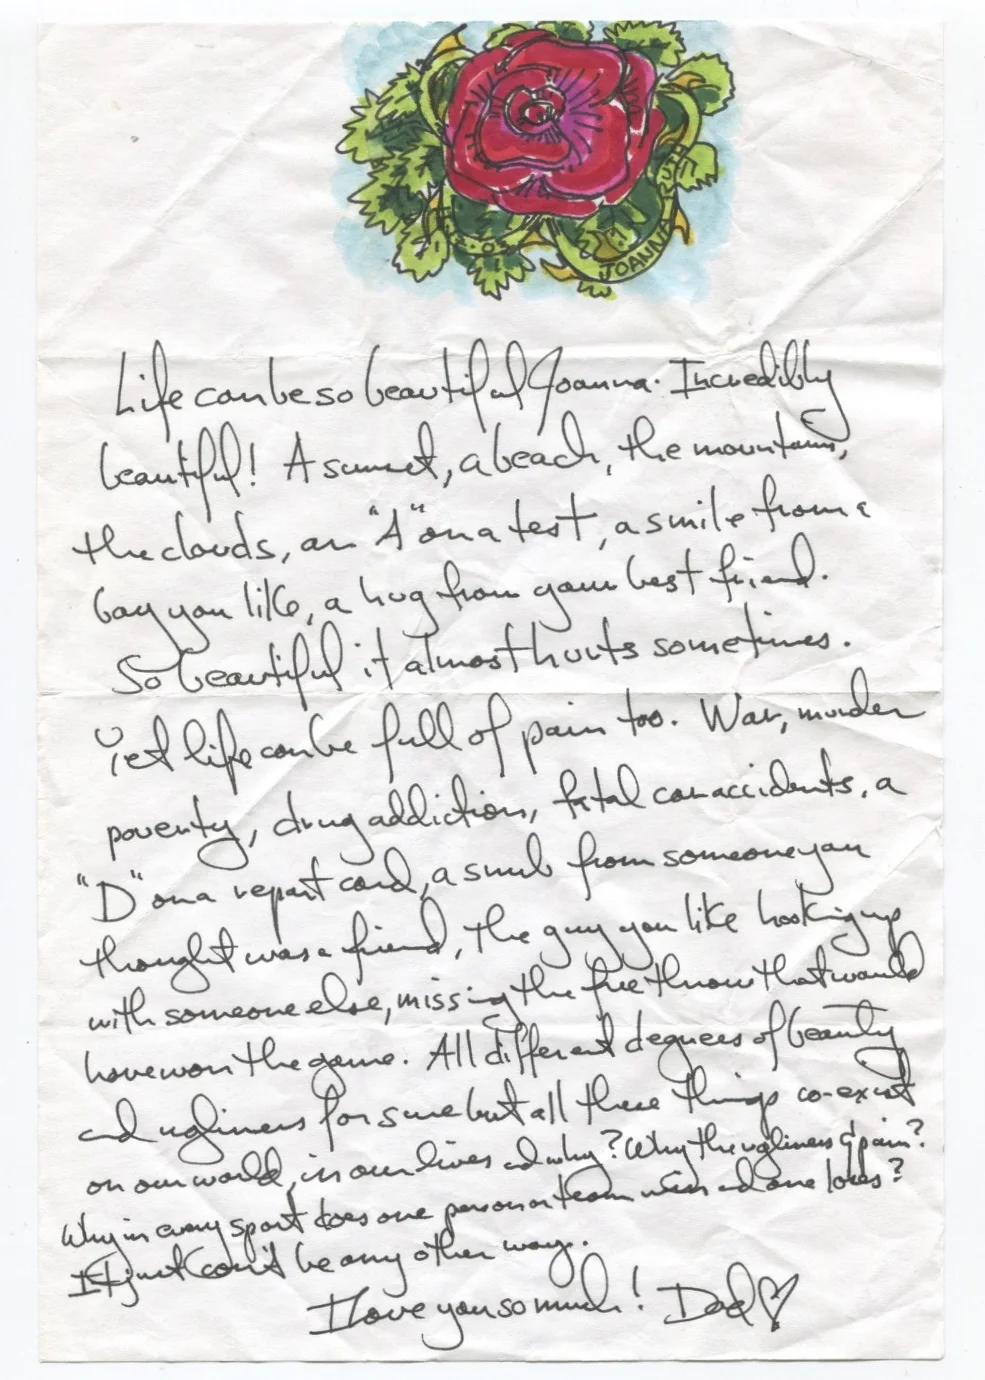 JOANNA
Life can be so beautiful Joanna. Incredibly
beautiful! A sunset, a beach, the mountains,
the clouds, an "A" on a test, a smile from a
boy you like, a hug from your best friend.
So beautiful it almost hurts sometimes.
Yet life can be full of pain too. War, murder
poverty, drug addiction, fatal car accidents, a
"D" on a report card, a snub from someone you
thought was a friend, the guy you like hooking up
with someone else, missing the free throw that would
have won the game. All different degrees of beauty
and ugliness for sure but all these things co-exist
on our world, in our lives and why? Why the ugliness & pain?
Why in every sport does one person or team win and one loses?
It just can't be any other way.
I love you so much! Dad